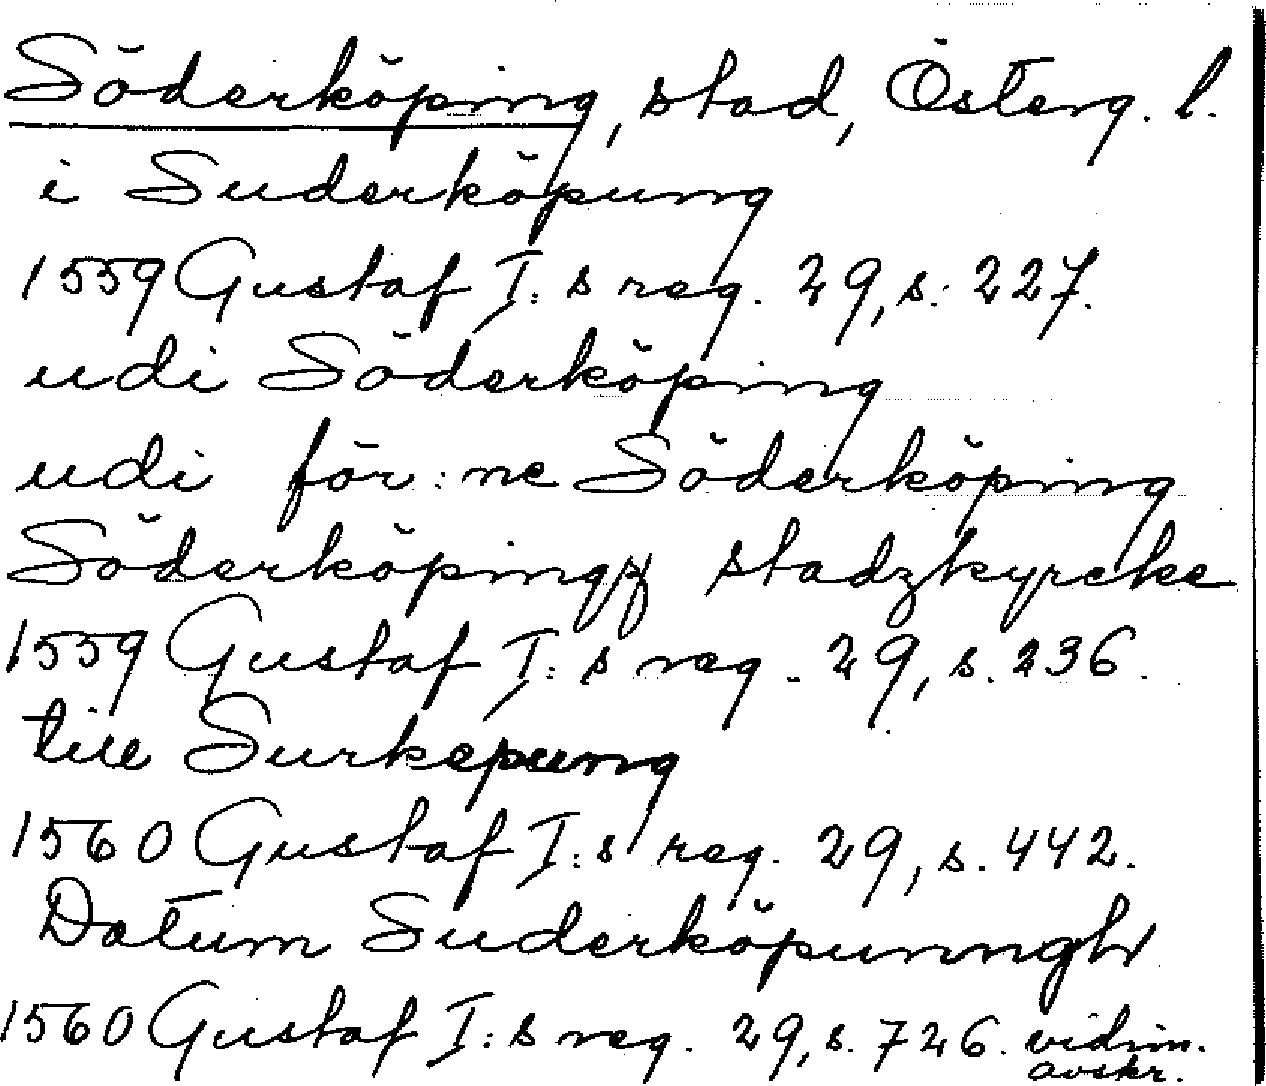 Söderköping, stad, Österg. l.
i Suderköpung
1559 Gustaf I:s reg. 29, s. 227.
udi Söderköping
udi för:ne Söderköping
stadzkyrcke
1559 Gustaf I:s reg. 29, s. 236.
till Surkepung
1560 Gustaf I:s reg. 29, s. 442.
Datum Suderköpunngh
1560 Gustaf I:s reg. 29, s. 726. vidim.
avskr.